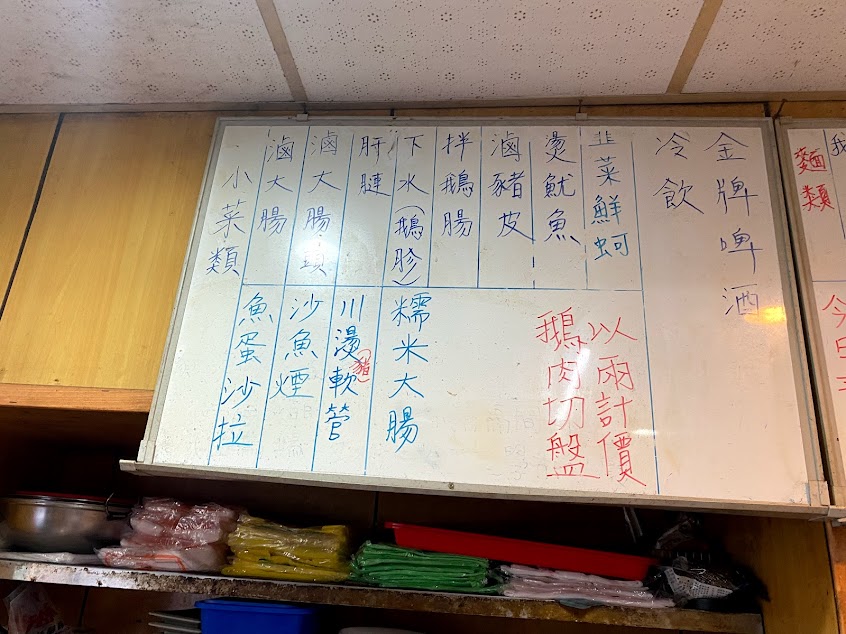 小菜類
滷大腸
滷大腸頭
肝
下水(鵝胗)
拌鵝腸
滷豬皮
燙魷魚
韭菜鮮蚵
魚蛋沙拉
沙魚煙
川燙軟管
(豬)
糯米大腸
鵝肉切盤
以兩計價
冷飲
金牌啤酒
麵類
我
今日